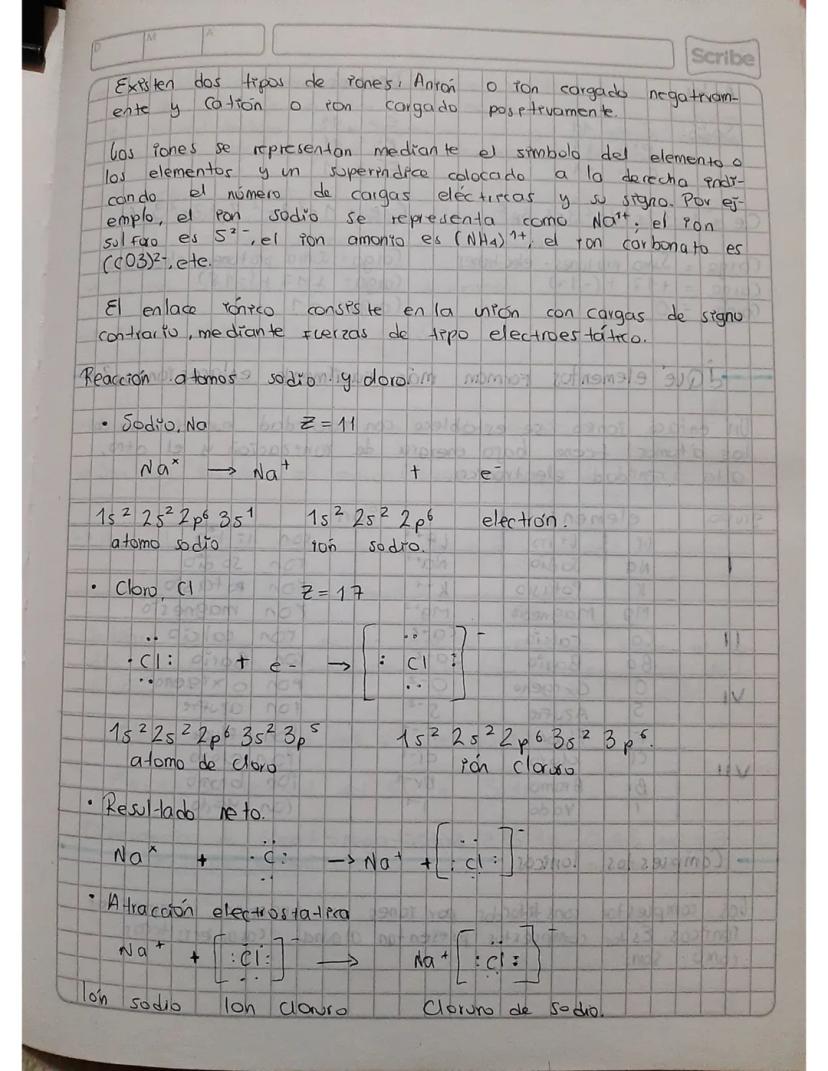 D M A Scribe
Existen dos tipos de iones, Anión o ion cargado negativam-
ente y catión o ion cargado positivamente.
Los iones se representan mediante el simbolo del elemento o
los elementos y un superindice colocado a la derecha indi-
cando el número de cargas eléctricas y su signo. Por ej-
emplo, el ion sodio se representa como Na¹⁺; el ion
sulfuro es S²⁻, el ion amonio es (NH4)¹⁺, el ion carbonato es
(CO3)²⁻, etc.
El enlace iónico consiste en la unión con cargas de signo
contrario, mediante fuerzas de tipo electroestático.
Reacción atomos sodio y cloro.
• Sodio, Na Z = 11
Naˣ → Na⁺ + e⁻
1s² 2s² 2p⁶ 3s¹ 1s² 2s² 2p⁶ electrón.
atomo sodio ión sodio.
• Cloro, Cl Z = 17
·Cl: + e- → [:Cl:]⁻
1s² 2s² 2p⁶ 3s² 3p⁵ 1s² 2s² 2p⁶ 3s² 3p⁶.
atomo de cloro ión cloruro
• Resultado neto.
Naˣ + ·C: → Na⁺ + [:Cl:]⁻
• Atracción electrostatica
Na⁺ + [:Cl:]⁻ → Na⁺[:Cl:]⁻
Ión sodio Ion cloruro Cloruro de sodio.